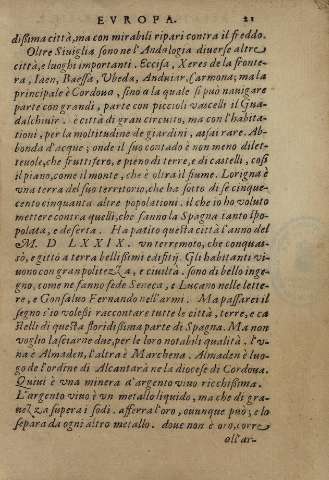 EVROPA. 21
dissima città, ma con mirabili ripari contra il freddo.
Oltre Siuiglia sono nell'Andalogia diuerse altre
città, e luoghi importanti. Eccisa, Xeres de la fronte-
ra, Iaen, Baessa, Vbeda, Anduiar, Carmona; ma la
principale è Cordoua, sino a la quale si può nauigare
parte con grandi, parte con piccioli vascelli il Gua-
dalchiuir. è città di gran circuito, ma con l'habita-
tioni, per la moltitudine de giardini, assai rare. Ab-
bonda d'acque; onde il suo contado è non meno dilet-
teuole, che fruttifero, e pieno di terre, e di castelli, cosi
il piano, come il monte, che è oltra il fiume. Lorigna è
vna terra del suo territorio, che ha sotto di se cinque-
cento cinquanta altre popolationi. il che io ho voluto
mettere contra quelli, che fanno la Spagna tanto spo-
polata, e deserta. Ha patito questa città l'anno del
M. D LXXIX. vn terremoto, che conquas-
sò, e gittò a terra bellissimi edifitij. Gli habitanti vi-
uono con gran politezza, e ciuiltà. sono di bello inge-
gno, come ne fanno fede Seneca, e Lucano nelle lette-
re, e Gonsaluo Fernando nell'armi. Ma passarei il
segno s'io volessi raccontare tutte le città, terre, e ca
stelli di questa floridissima parte di Spagna. Ma non
voglio lasciarne due, per le loro notabili qualità. l'v-
na è Almaden, l'altra è Marchena. Almaden è luo-
go de l'ordine di Alcantarà ne la diocese di Cordoua.
Quiui è vna minera d'argento viuo ricchissima.
L'argento viuo è vn metallo liquido, ma che di gra-
uezza supera i sodi. afferra l'oro, ouunque può; e lo
separa da ogni altro metallo. doue non è oro, corre
all'ar-